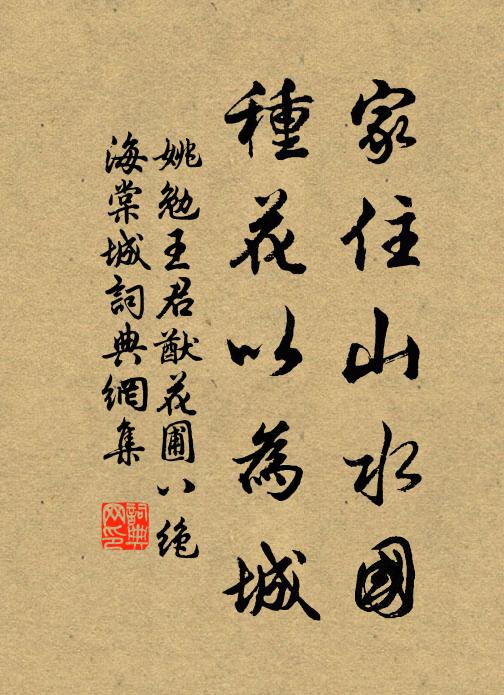 家住山水國
種花以為城
姚勉王君猷花圃八絕
海棠城詞典網集
詞典網印